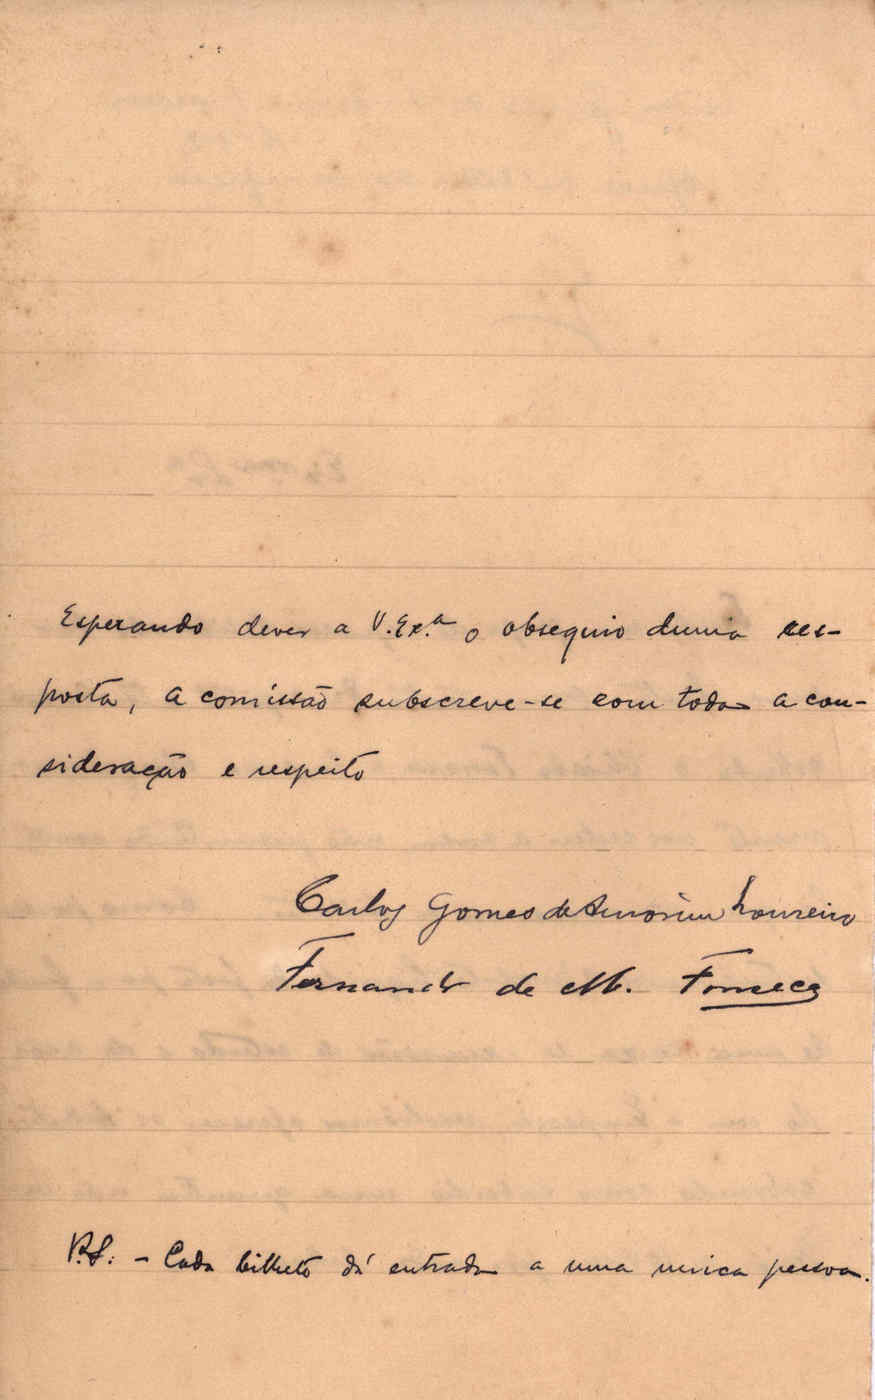 Esperando dever a V. Ex.ª o obsequio duma res-
posta, a comissão subscreve-se com toda a con-
sideração e respeito
Carlos Gomes de Amorim Loureiro
Fernando de M. Fonseca
P.S. - Cada bilhete dá entrada a uma unica pessoa.